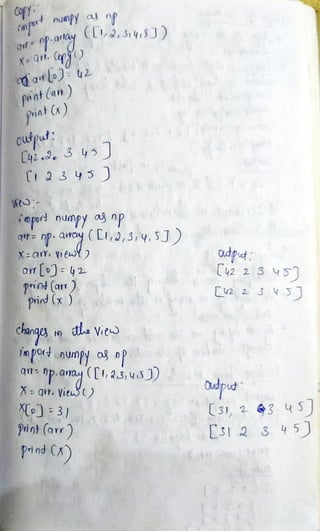 Copy:-
import numpy as np
arr = np.array ([1,2,3,4,5])
x = arr. Copy()
arr[0] = 42
print (arr)
print (x)
output:
[42. 2. 3 4 5]
[1 2 3 4 5]
View:-
import numpy as np
arr = np. array ([1,2,3,4,5])
x = arr. view()
arr [0] = 42
print (arr)
print (x)
output:
[42 2 3 4 5]
[42 2 3 4 5]
changes in the View
import numpy as np
arr = np.array ([1,2,3,4,5])
X = arr. view()
X[0] = 31
print (arr)
print (X)
output:
[31, 2 3 4 5]
[31 2 3 4 5]